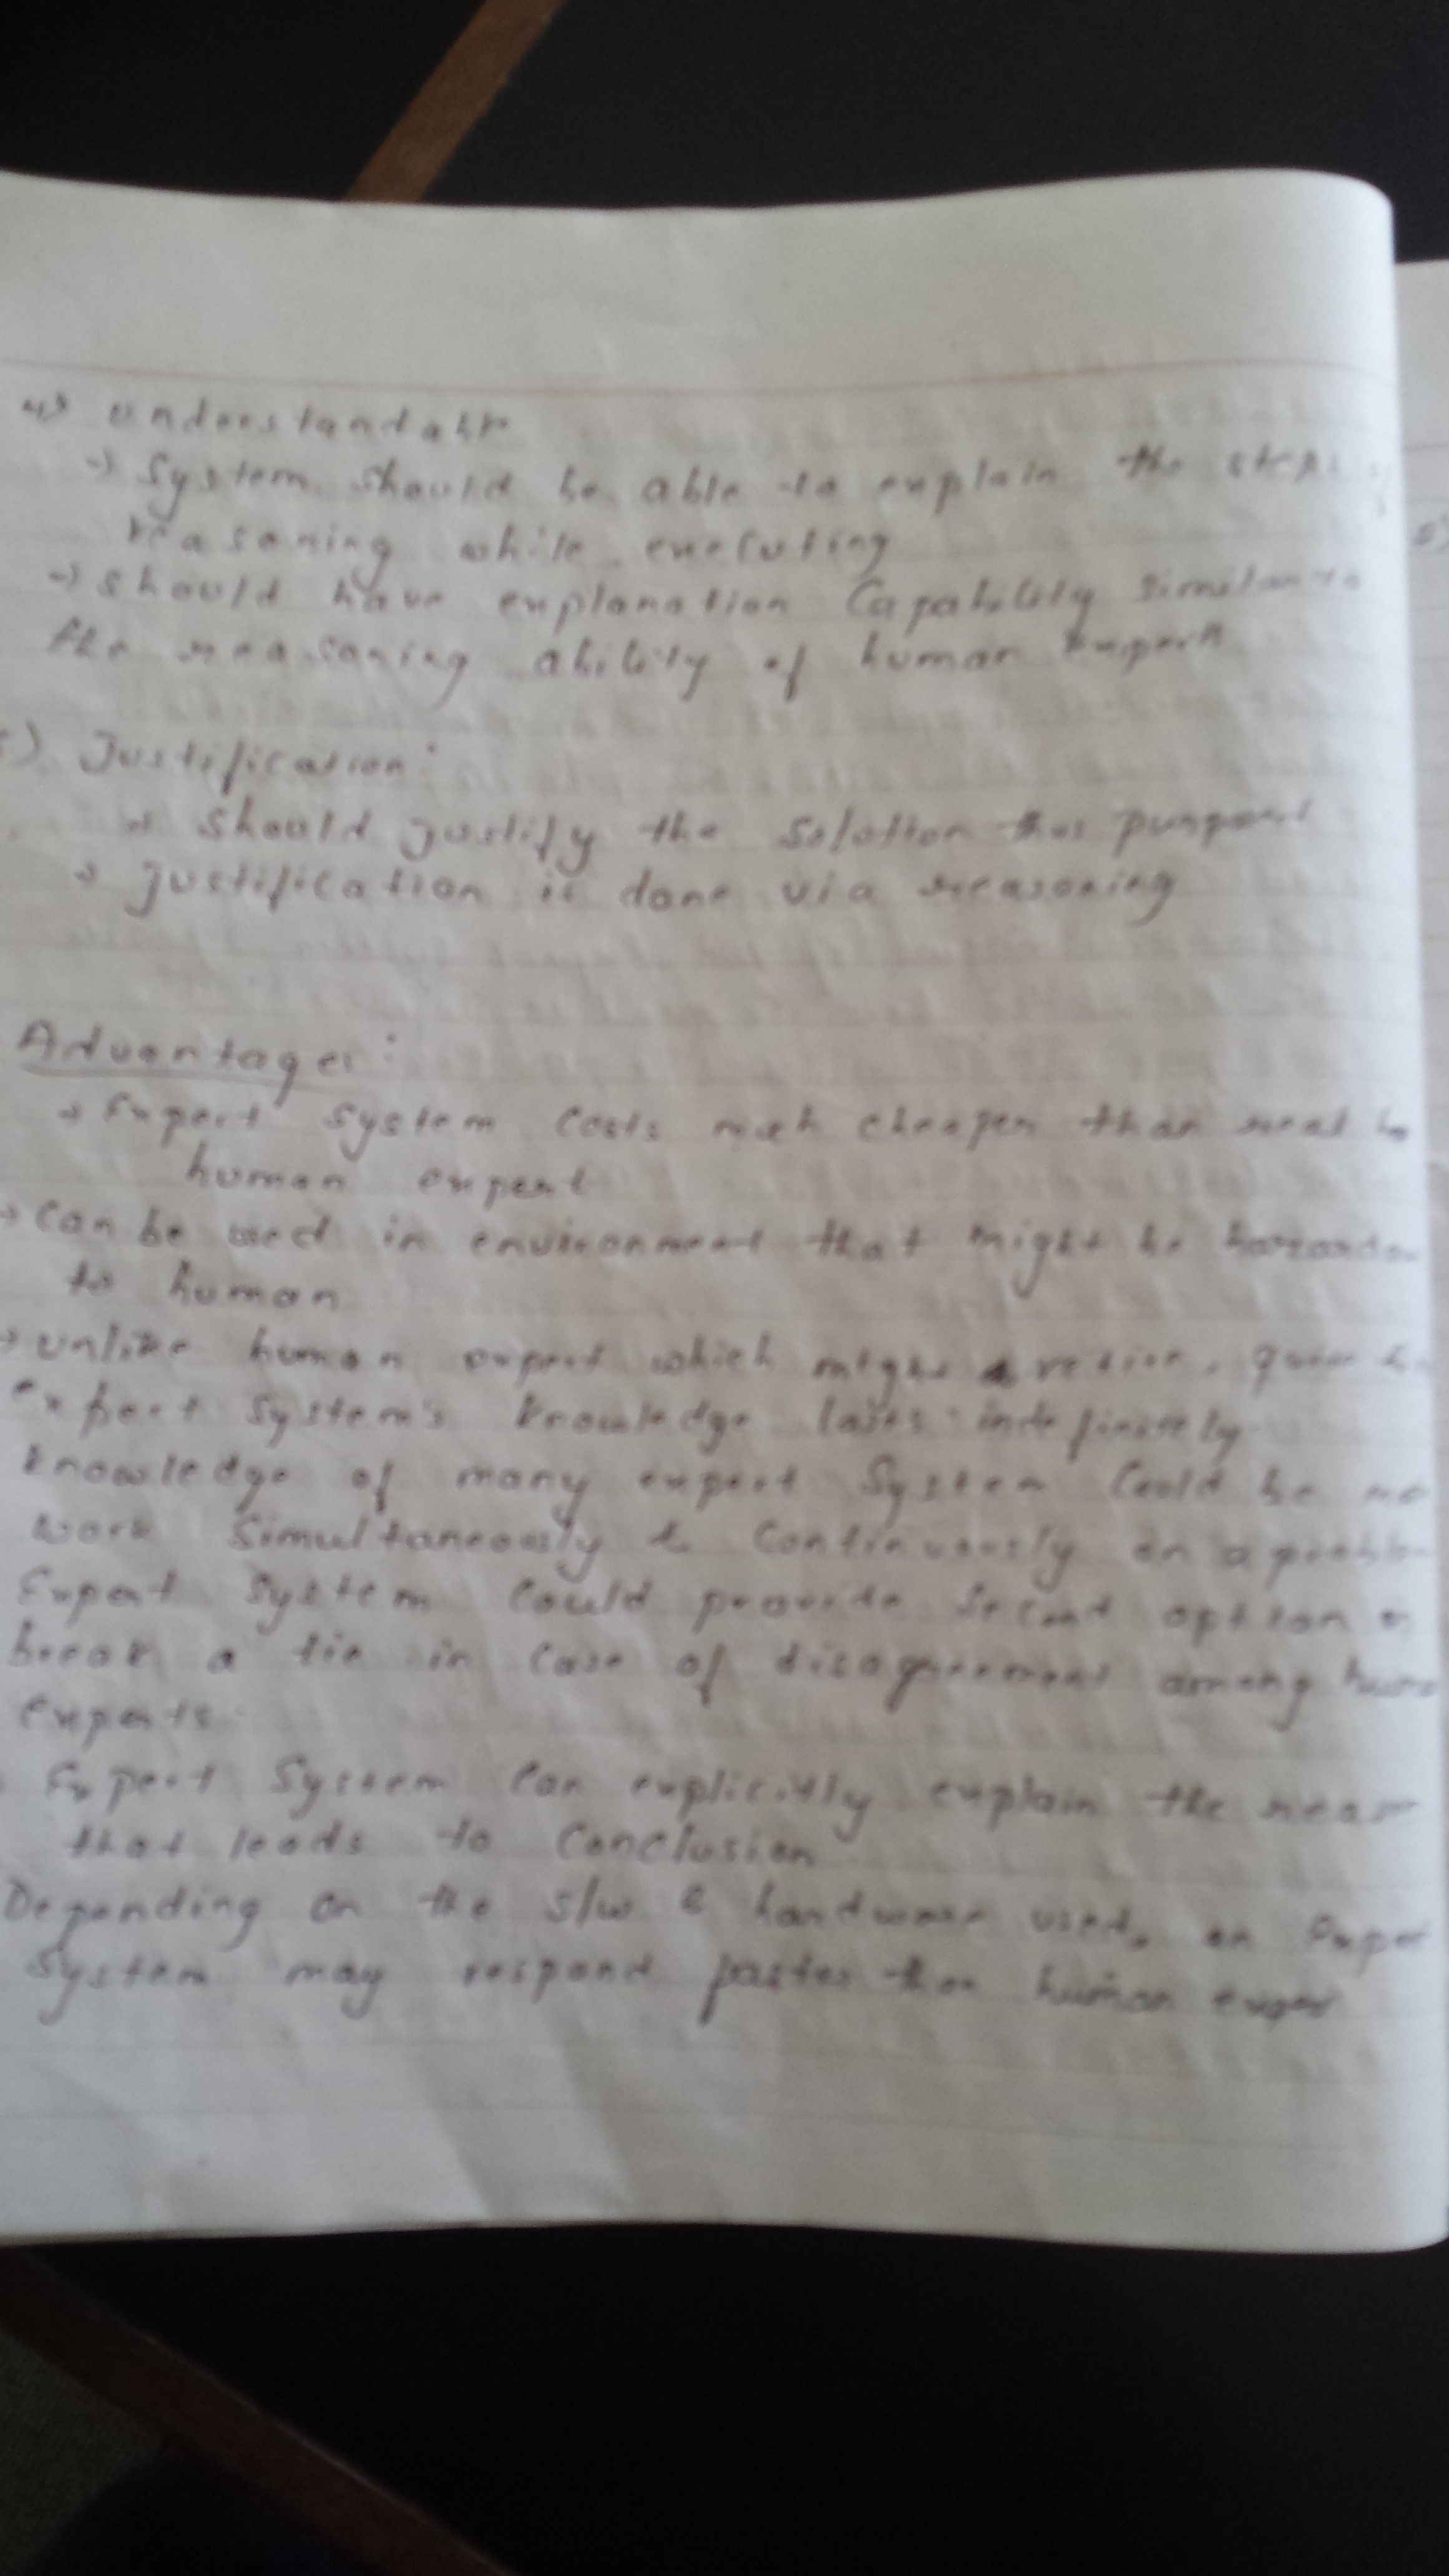 4) Understandable
→ System should be able to explain the steps of
reasoning while executing
→ should have explanation Capability similar to
the reasoning ability of human expert
5) Justification:
→ should justify the solution that
→ justification is done via reasoning
Advantages:
→ Expert System Costs much cheaper than real
human expert
→ Can be used in environment that might be
to human
→ unlike human expert which might retire,
expert system's knowledge lasts indefinitely
knowledge of many expert System Could be
work Simultaneously & Continuously on a problem
Expert System Could provide Second option
break a tie in Case of disagreement among
experts.
Expert System Can explicitly explain the
that leads to Conclusion.
Depending on the s/w & hardware used, an
System may respond faster than human